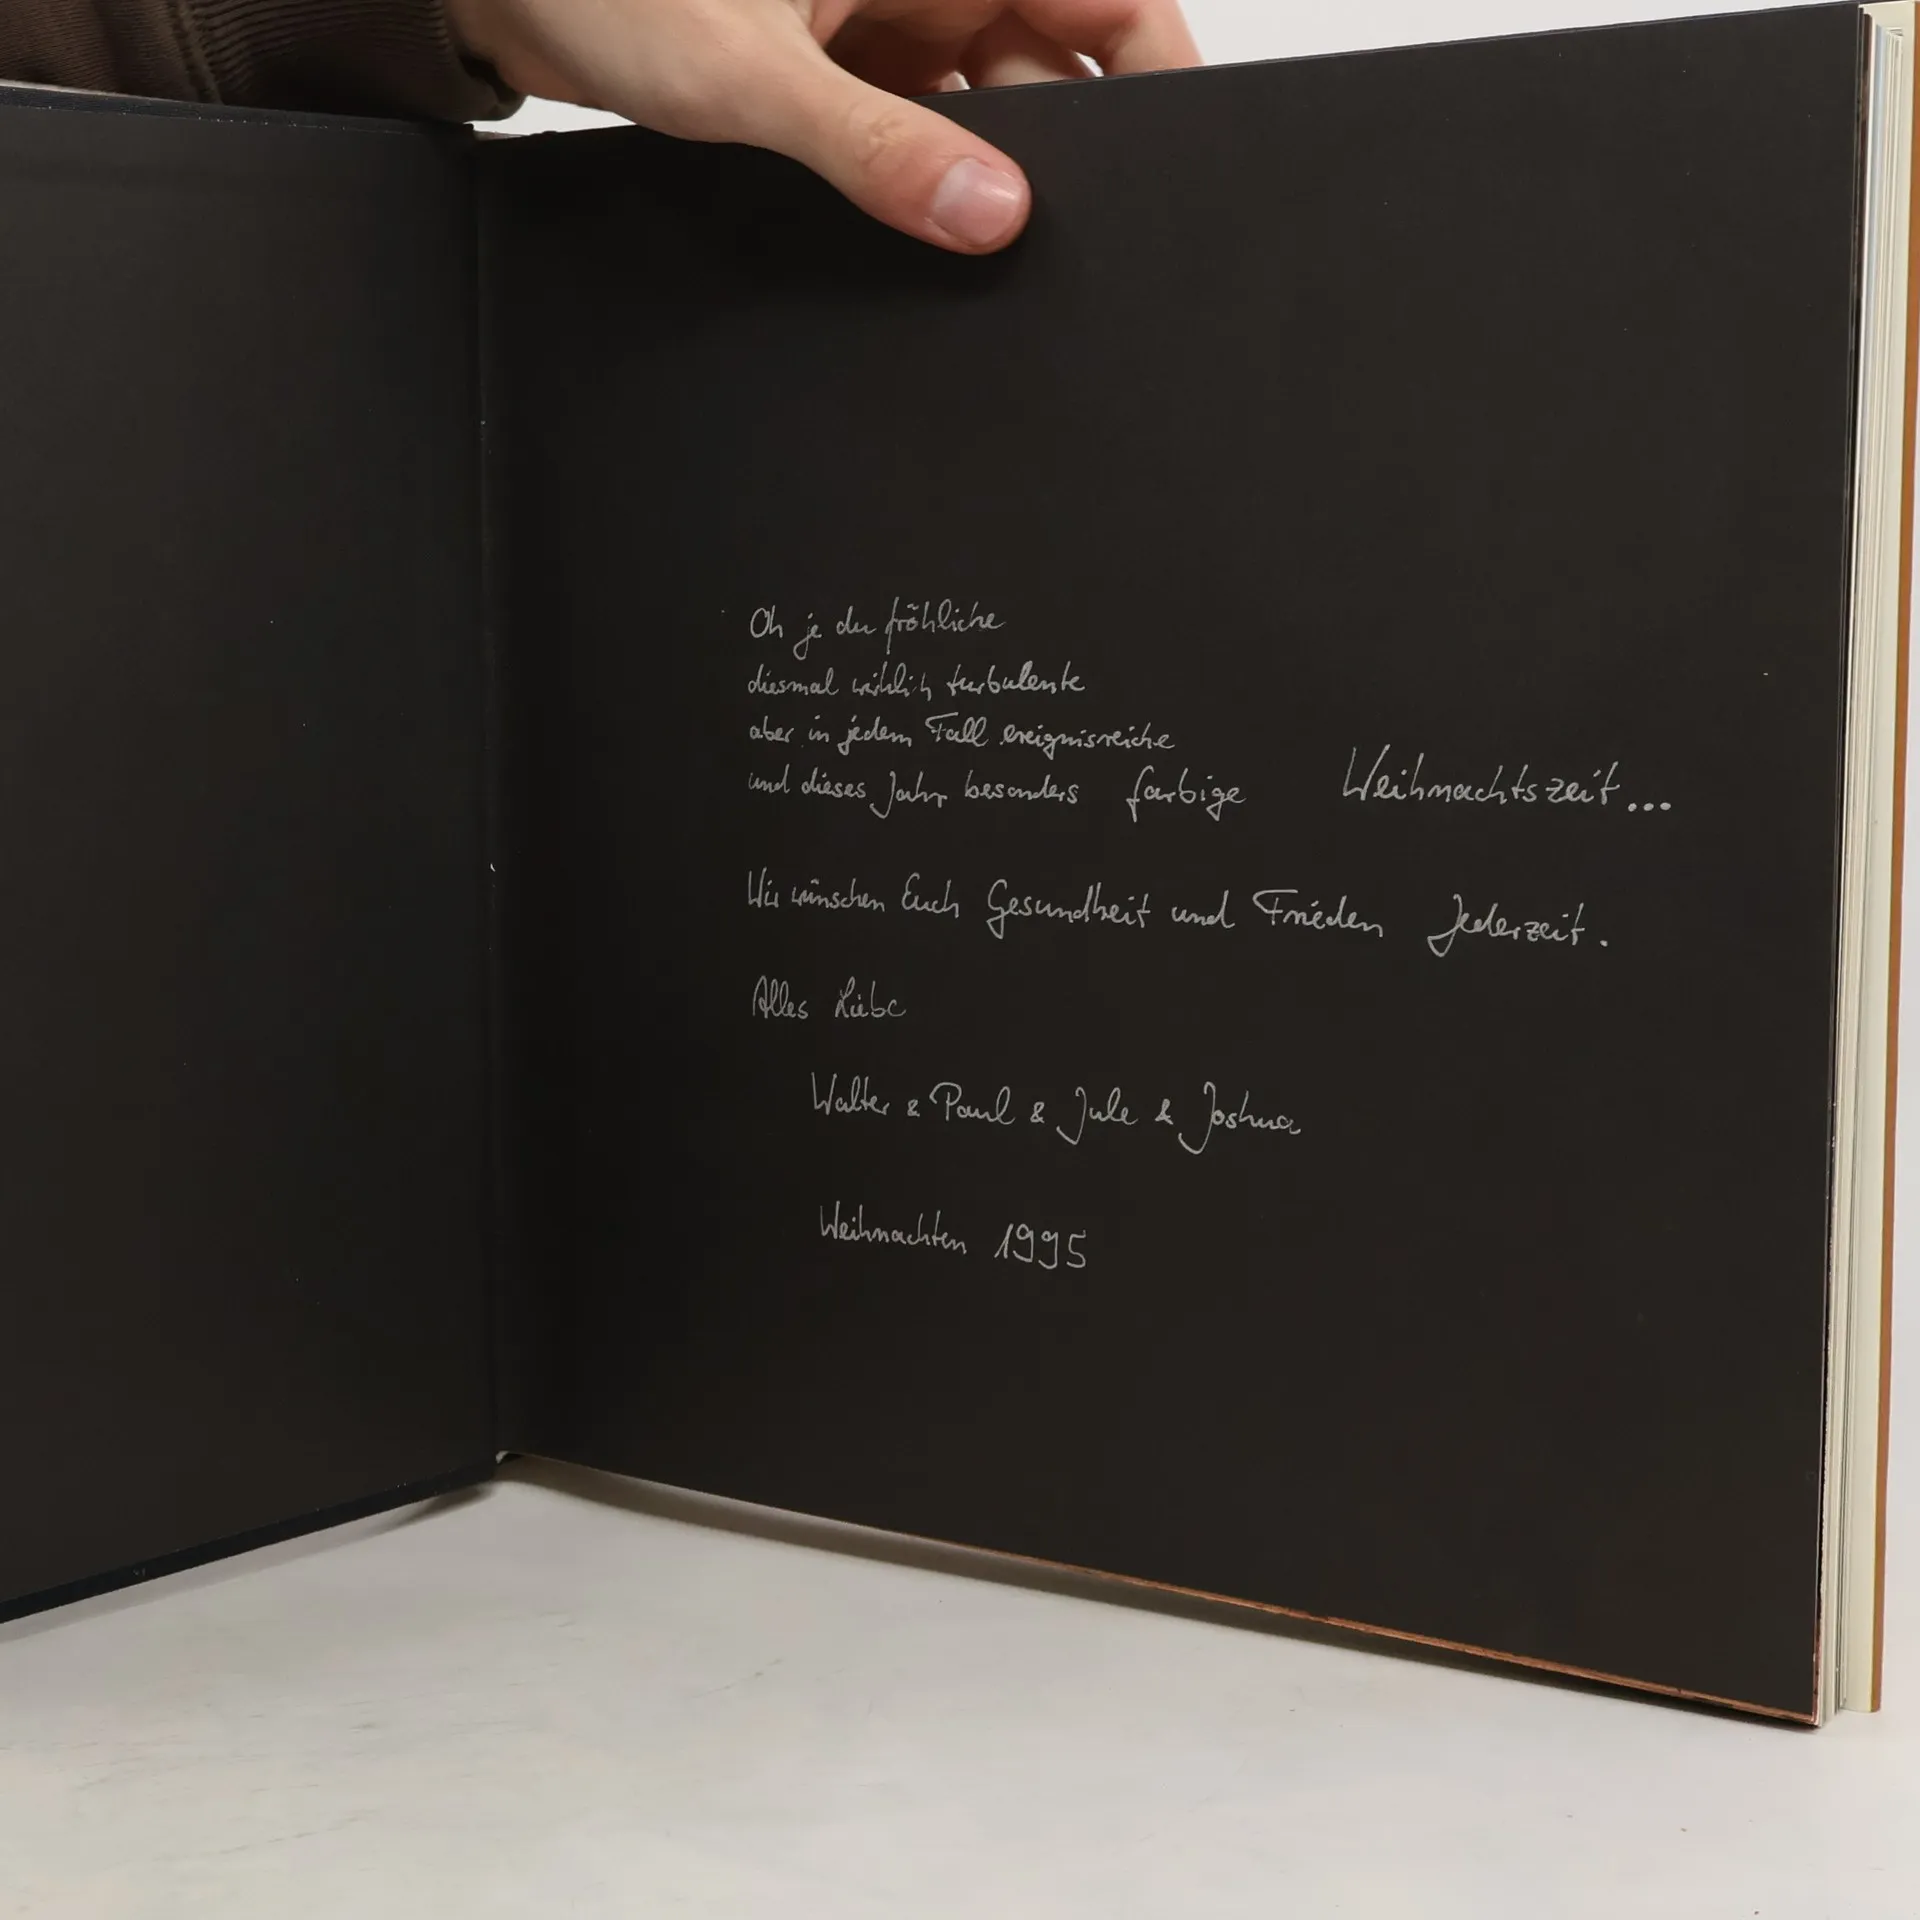 Oh je du fröhliche
diesmal wirklich turbulente
aber in jedem Fall ereignisreiche
und dieses Jahr besonders farbige Weihnachtszeit...
Wir wünschen Euch Gesundheit und Frieden Jederzeit.
Alles Liebe
Walter & Paul & Jule & Joshua
Weihnachten 1995